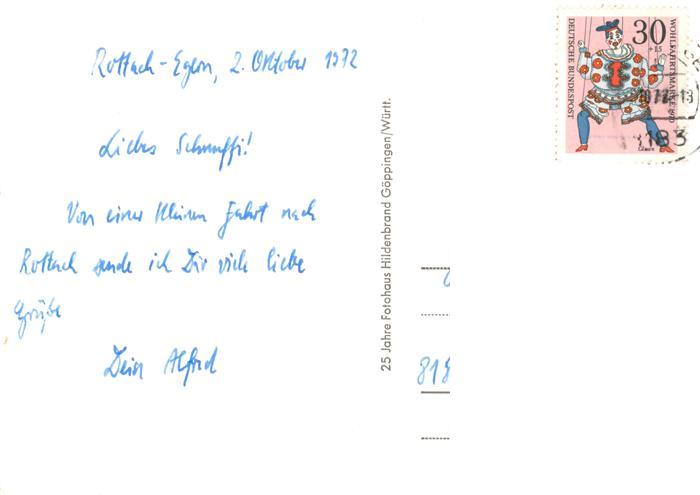 Rottach-Egern, 2. Oktober 1972
Liebes Schnuffi!
Von einer kleinen Fahrt nach
Rottach sende ich Dir viele liebe
Grüße
Dein Alfred
25 Jahre Fotohaus Hildenbrand Göppingen/Württ.
818
DEUTSCHE BUNDESPOST
30
+15
WOHLFAHRTSMARKE 1970
183